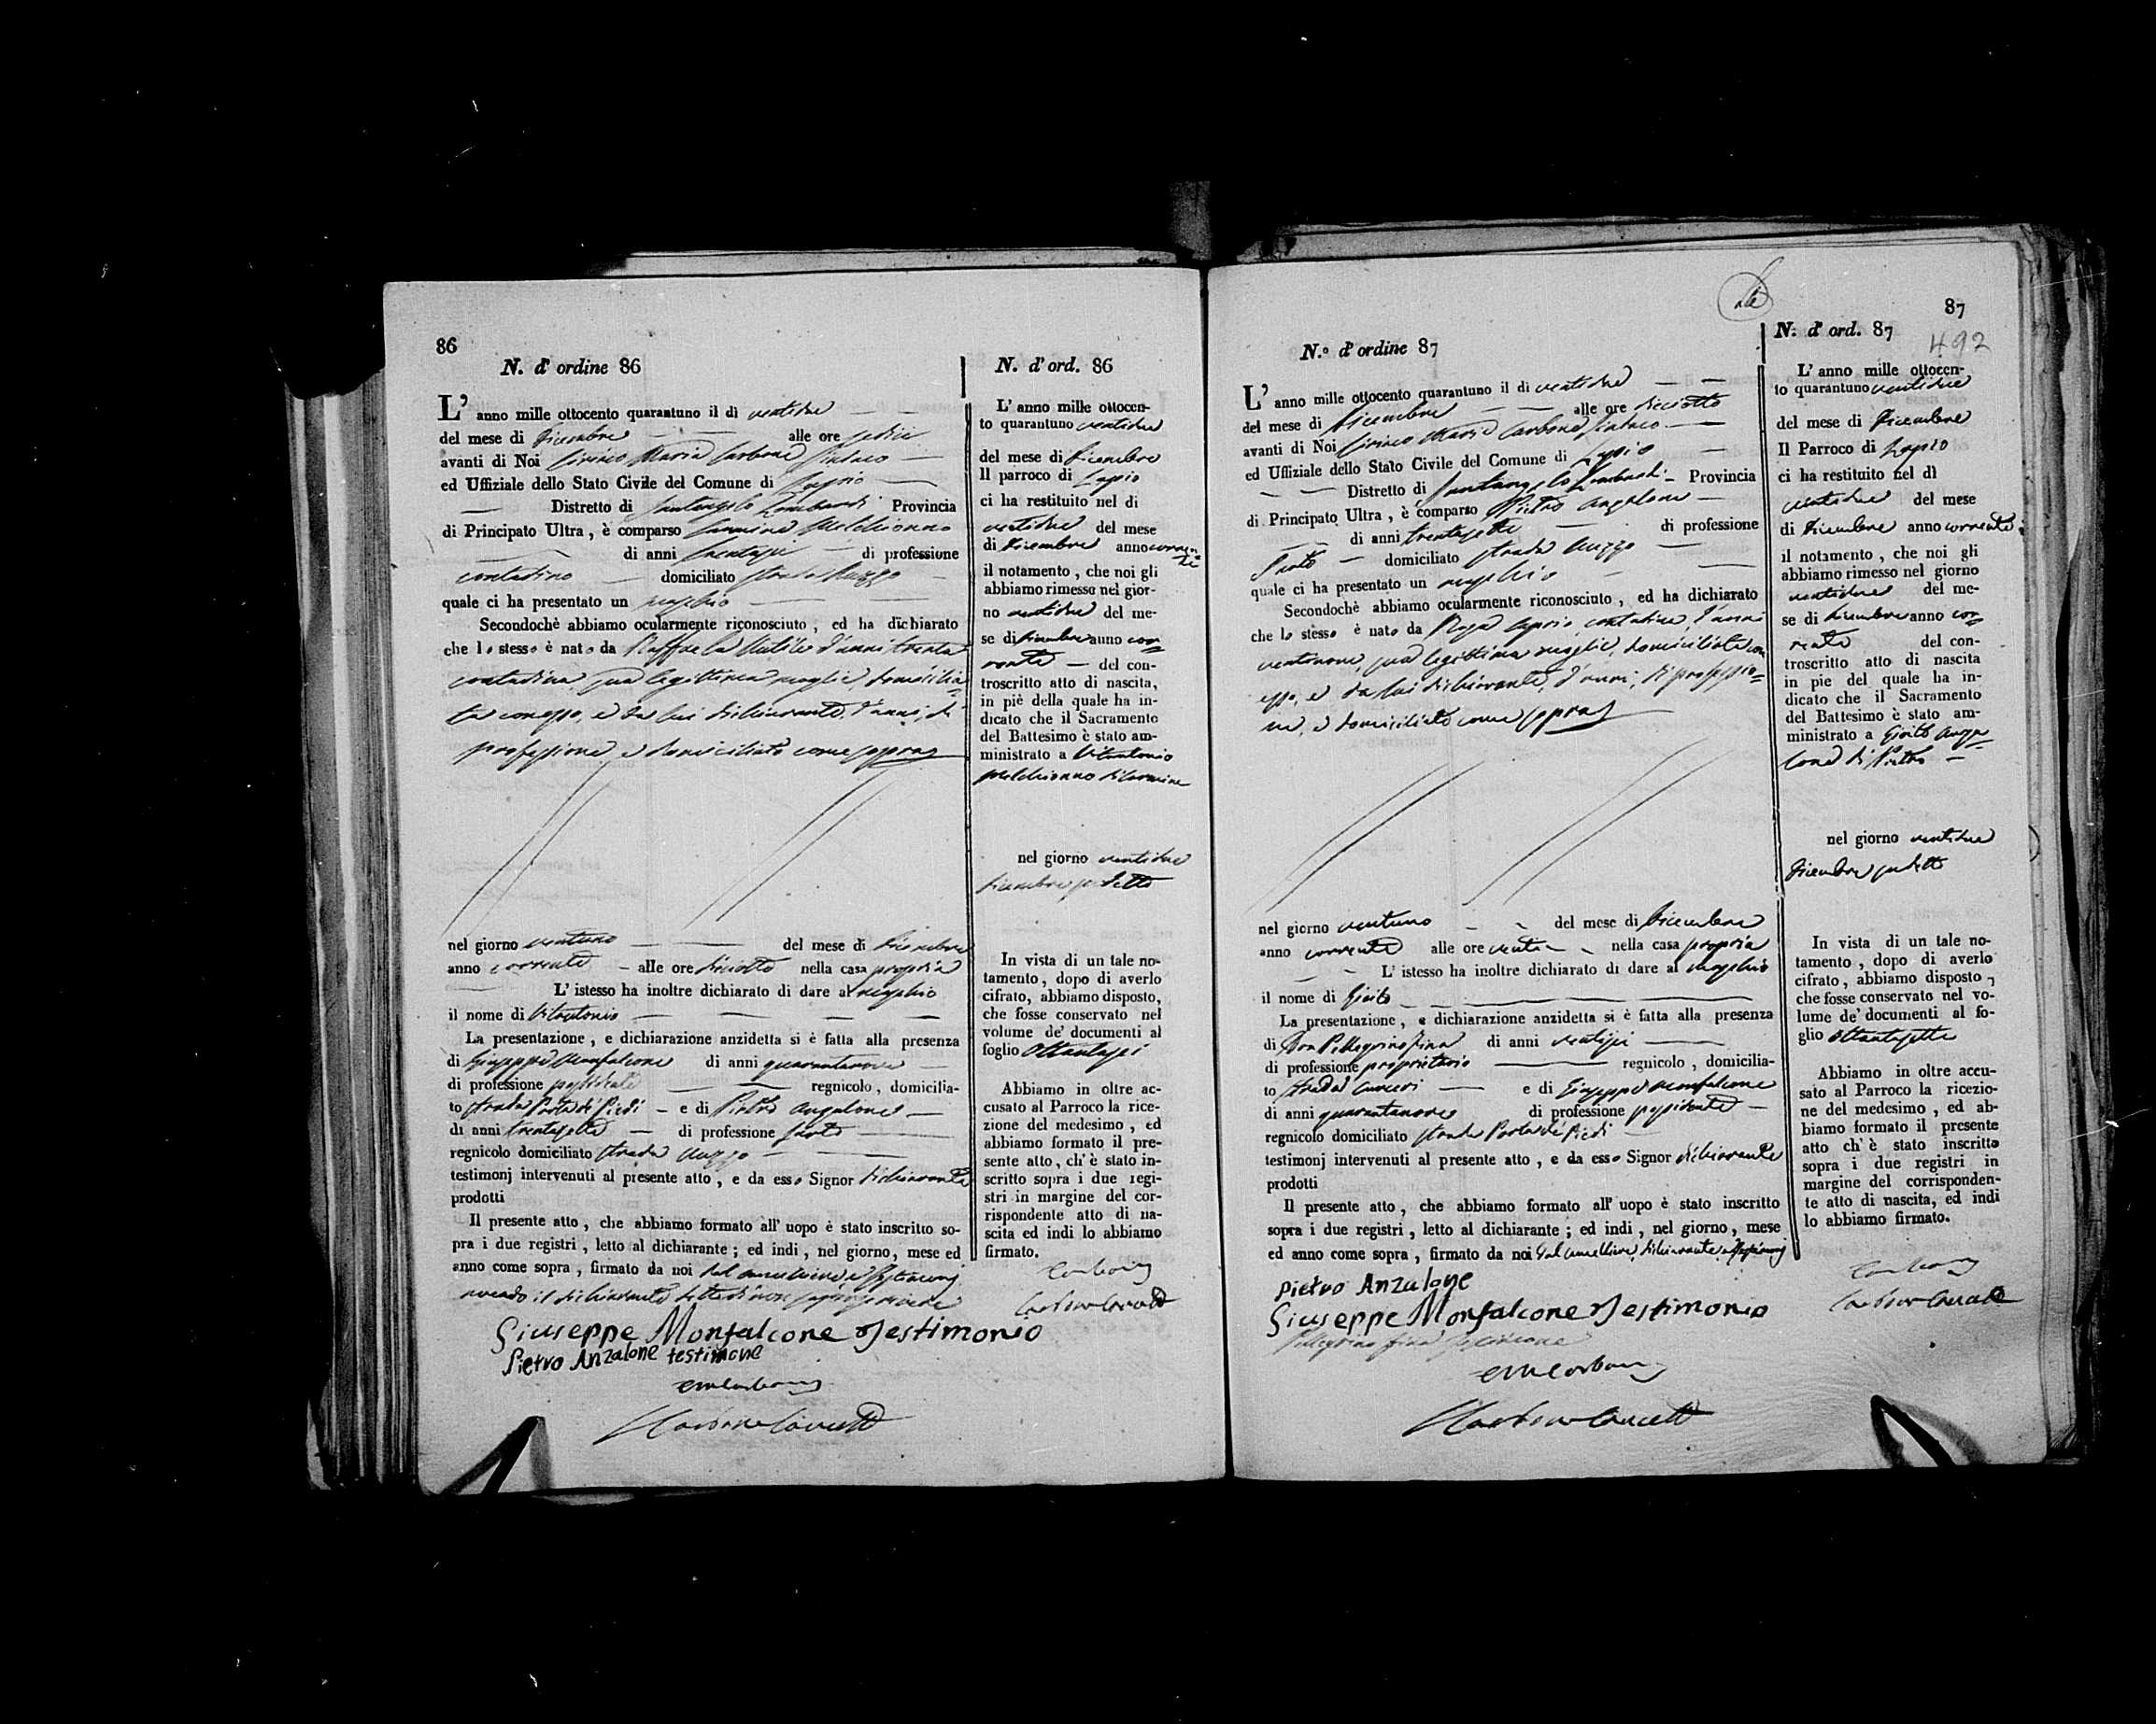 86
N. d' ordine 86
L' anno mille ottocento quarantuno il dì ventidue
del mese di Dicembre alle ore sedici
avanti di Noi Ciriaco Maria Carbone Sindaco
ed Uffiziale dello Stato Civile del Comune di Lapio
Distretto di Santangelo Lombardi Provincia
di Principato Ultra , è comparso Carmine Melchionno
di anni trentasei di professione
contadino domiciliato strada
quale ci ha presentato un maschio
Secondochè abbiamo ocularmente riconosciuto , ed ha dichiarato
che lo stesso è nato da Raffaela d'anni trenta
contadina, sua legittima moglie, domicilia=
ta con esso, e da lui dichiarante, d'anni, di
professione e domiciliato come sopra
nel giorno ventuno del mese di Dicembre
anno corrente alle ore diciotto nella casa propria
L' istesso ha inoltre dichiarato di dare al maschio
il nome di Vitantonio
La presentazione , e dichiarazione anzidetta si è fatta alla presenza
di Giuseppe Monfalcone di anni quarantanove
di professione possidente regnicolo , domicilia-
to strada Porta de' Piedi e di Pietro Anzalone
di anni trentasette di professione sarto
regnicolo domiciliato strada
testimonj intervenuti al presente atto , e da esso Signor dichiarante
prodotti
Il presente atto , che abbiamo formato all' uopo è stato inscritto so-
pra i due registri , letto al dichiarante ; ed indi , nel giorno, mese ed
anno come sopra , firmato da noi dal cancelliere, e testimonj
avendo il dichiarante detto di non saper scrivere
Giuseppe Monfalcone Testimonio
Pietro Anzalone testimone
N. d' ord. 86
L' anno mille ottocen-
to quarantuno ventidue
del mese di Dicembre
Il parroco di Lapio
ci ha restituito nel di
ventidue del mese
di Dicembre anno corren=
te
il notamento , che noi gli
abbiamo rimesso nel gior-
no ventidue del me-
se di Dicembre anno cor=
rente del con-
troscritto atto di nascita,
in piè della quale ha in-
dicato che il Sacramento
del Battesimo è stato am-
ministrato a Vitantonio
Melchionno di Carmine
nel giorno ventidue
Dicembre sudetto
In vista di un tale no-
tamento , dopo di averlo
cifrato, abbiamo disposto,
che fosse conservato nel
volume de' documenti al
foglio ottantasei
Abbiamo in oltre ac-
cusato al Parroco la rice-
zione del medesimo , ed
abbiamo formato il pre-
sente atto, ch' è stato in-
scritto sopra i due regi-
stri in margine del cor-
rispondente atto di na-
scita ed indi lo abbiamo
firmato.
87
492
N.o d' ordine 87
L' anno mille ottocento quarantuno il dì ventidue
del mese di Dicembre alle ore diciotto
avanti di Noi Ciriaco Maria Carbone Sindaco
ed Uffiziale dello Stato Civile del Comune di Lapio
Distretto di Santangelo Lombardi Provincia
di Principato Ultra , è comparso Pietro Anzalone
di anni trentasette di professione
Sarto domiciliato strada
quale ci ha presentato un maschio
Secondochè abbiamo ocularmente riconosciuto , ed ha dichiarato
che lo stesso è nato da Rosa Caprio, contadina, d'anni
ventinove, sua legittima moglie, domiciliata con
esso, e da lui dichiarante, d'anni, di professio=
ne, e domiciliato come sopra
nel giorno ventuno del mese di Dicembre
anno corrente alle ore venti nella casa propria
L' istesso ha inoltre dichiarato di dare al maschio
il nome di
La presentazione , e dichiarazione anzidetta si è fatta alla presenza
di Don Pellegrino Fina di anni ventisei
di professione proprietario regnicolo , domicilia-
to strada e di Giuseppe Monfalcone
di anni quarantanove di professione possidente
regnicolo domiciliato strada Porta de' Piedi
testimonj intervenuti al presente atto , e da esso Signor dichiarante
prodotti
Il presente atto , che abbiamo formato all' uopo è stato inscritto
sopra i due registri , letto al dichiarante ; ed indi , nel giorno , mese
ed anno come sopra , firmato da noi dal cancelliere, dichiarante, e testimonj
Pietro Anzalone
Giuseppe Monfalcone Testimonio
Pellegrino Fina testimone
N. d' ord. 87
L' anno mille ottocen-
to quarantuno ventidue
del mese di Dicembre
Il Parroco di Lapio
ci ha restituito nel dì
ventidue del mese
di Dicembre anno corrente
il notamento , che noi gli
abbiamo rimesso nel giorno
ventidue del me-
se di Dicembre anno cor=
rente del con-
troscritto atto di nascita
in pie del quale ha in-
dicato che il Sacramento
del Battesimo è stato am-
ministrato a Anza=
lone di Pietro
nel giorno ventidue
Dicembre sudetto
In vista di un tale no-
tamento , dopo di averlo
cifrato , abbiamo disposto ,
che fosse conservato nel vo-
lume de' documenti al fo-
glio ottantasette
Abbiamo in oltre accu-
sato al Parroco la ricezio-
ne del medesimo , ed ab-
biamo formato il presente
atto ch' è stato inscritto
sopra i due registri in
margine del corrisponden-
te atto di nascita, ed indi
lo abbiamo firmato.